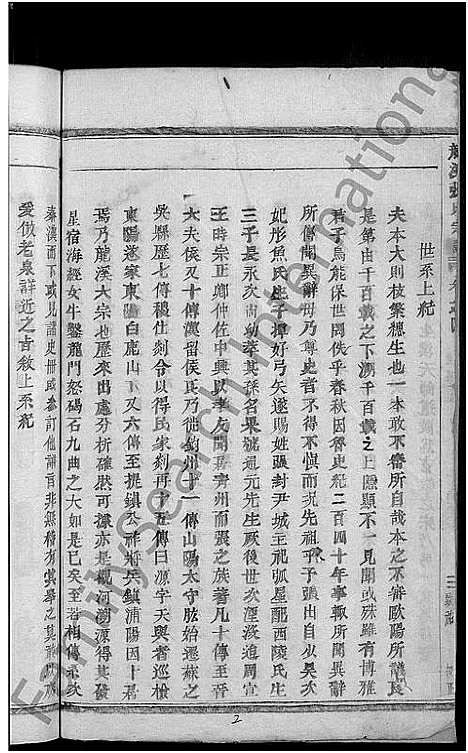 世系上紀
夫本大則枝葉穗生也一本敢不審所自哉本之不審歐陽所譏良
是第由千百載之下溯千百載之上隱顯不一見聞或殊雖有博雅
君子烏能保世閱佚乎春秋因魯史紀二百四十年事輙所聞異辭
所傳聞異辭毋乃尊史者不得不慎而況先祖乎予張由自少昊次
妃彤魚氏生子揮好弓矢遂賜姓張封尹城主祀弧星配西陵氏生
三子長永次尚幼菜其孫名果號通元先生厥後世次湮沒追周宣
王時宗正卿仲佐中興以孝友聞喜齊州而張之族著凡十傳至晉
大夫侯又十傳漢留侯良乃徙荊州十一傳山陽太守肱始遷蘇之
吳縣歷七傳稷仕剡令以得民家剡再十五傳曰源字天與者巡檢
東陽遂家東陽白鹿山下又六傳至提鎮公祥將兵鎮浦陽因十嘉
焉乃龍溪大宗也歷來出處分析確然可據亦是觀河溯源得其發
星宿海經女牛鑿龍門怒碣石九曲之大如是已矣至若相傳宗次
秦漢而下或見諸史册或參訂他譜言非無稽有美舉之莫敢或廢
爰倣老泉詳近之吉敘上系紀
三
2
FamilySearch International